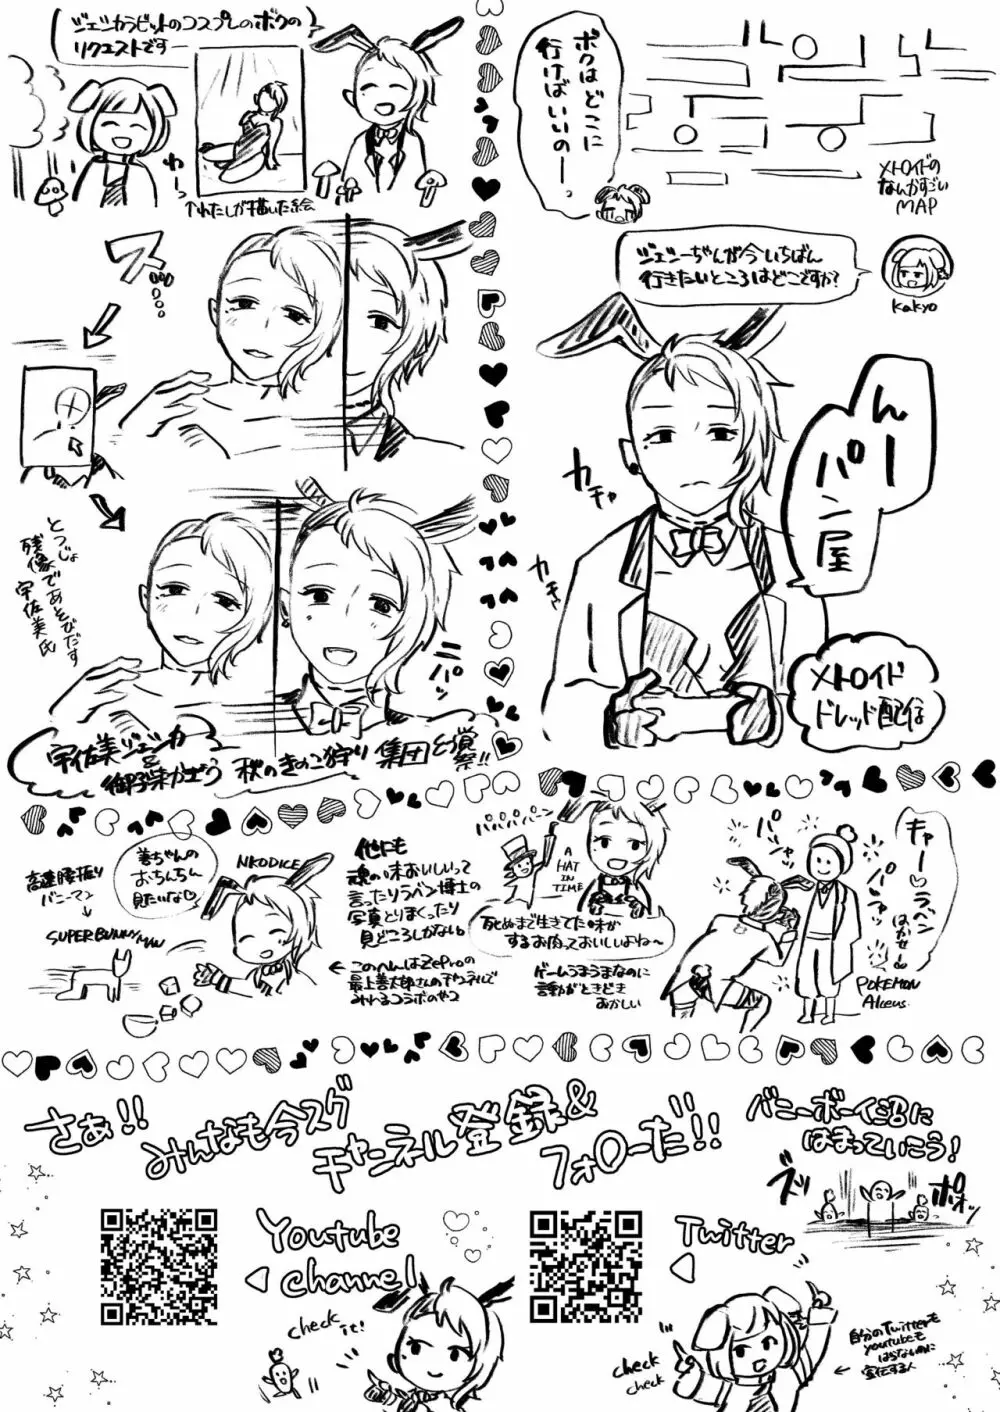 ボクはどこに
行けばいいのー
メトロイドの
なんかすごい
MAP
ジェシーちゃんが今いちばん
行きたいところはどこですか?
kakyo
んー
パン屋
カチャ
カチャ
メトロイド
ドレッド配信
ジェシカラビットのコスプレのボクの
リクエストですー
わーっ
↑わたしが描いた絵
ズ
とつじょ
残像であそびだす
宇佐美氏
ニパッ
宇佐美ジェシカ
&
秋のきのこ狩り 集団幻覚!!
高速腰振り
バニーマン
SUPER BUNNY MAN
善ちゃんの
おちんちん
見たいな
NKODICE
他にも
魂の味おいしいって
言ったりラベン博士の
写真とりまくったり
見どころしかない。
このへんはZeproの
最上善太郎さんのチャンネルで
みれるコラボのやつ
パパパパーン
A
HAT
IN
TIME
死ぬまで生きてた味が
するお肉っておいしいよね〜
ゲームうまうまなのに
言動がときどき
おかしい
キャー♡ラベン
はかせー
パシャッ
パシャッ
POKEMON
Alceus
さあ!!
みんなも今スグ
チャンネル登録&
フォローだ!!
バニーボーイ沼に
はまっていこう!
ズッ
ポォッ
Youtube
channel
check it!
Twitter
check
check
自分のTwitterも
youtubeも
はらないのに
宣伝する人